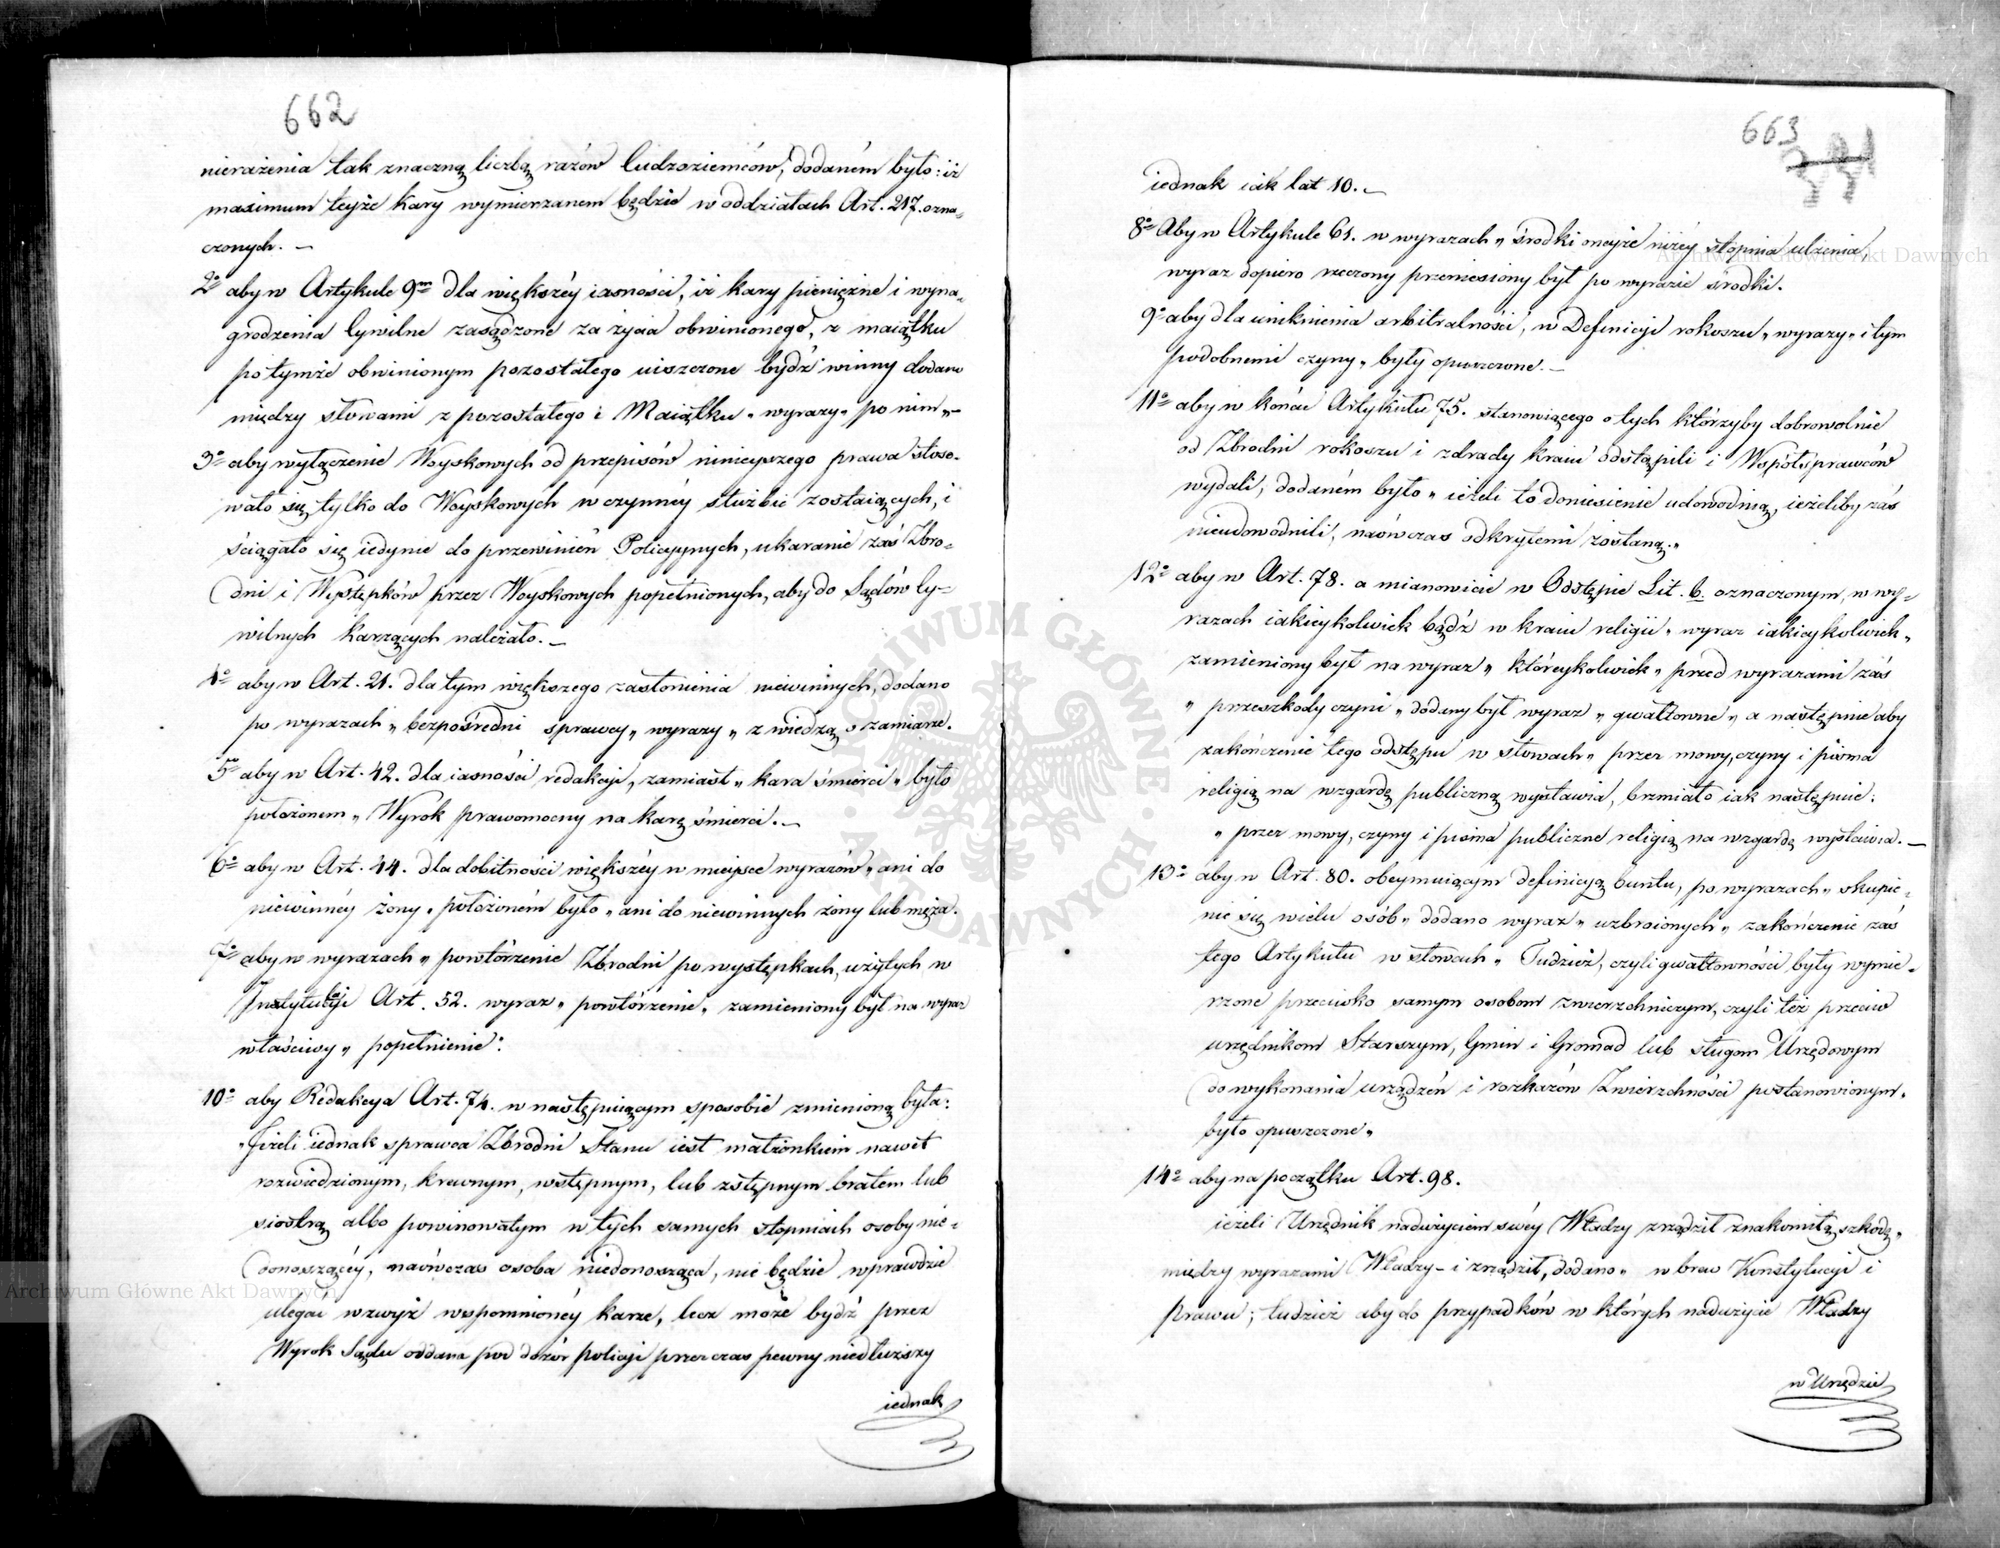 662
nierażenia tak znaczną liczbą razów ludzoziemców, dodaném było: iż
maximum teyże kary wymierzanem będzie w oddziałach Art. 217. ozna-
czonych. —
2° aby w Artykule 9ᵐ dla większéy iasności, iż kary pieniężne i wyna-
grodzenia Cywilne zasądzone za życia obwinionego, z maiątku
po tymże obwinionym pozostałego uiszczone bydź winny dodano
między słowami z pozostałego i Maiątku „wyrazy„ po nim„—
3° aby wyłączenie Woyskowych od przepisów ninieyszego prawa stoso-
wało się tylko do Woyskowych w czynnéy służbie zostaiących, i
ściągało się iedynie do przewinień Policyynych, ukaranie zaś Zbro-
dni i Występków przez Woyskowych popełnionych, aby do Sądów Cy-
wilnych Karzących należało. —
4° aby w Art. 21. dla tym większego zasłonienia niewinnych, dodano
po wyrazach „bezpośredni sprawcy„ wyrazy „z wiedzą o zamiarze.
5° aby w Art. 42. dla iasności redakcyi, zamiast „kara śmierci„ było
położonem „Wyrok prawomocny na karę śmierci. —
6° aby w Art. 44. dla dobitności większéy w miejsce wyrazów „ani do
niewinnéy żony„ położoném było „ani do niewinnych żony lub męża.
7° aby w wyrazach „powtórzenie Zbrodni po występkach, użytych w
Instytucyi Art. 52. wyraz „powtórzenie„ zamieniony był na wyraz
właściwy „popełnienie".
10° aby Redakcya Art. 74. w następuiącym sposobie zmienioną była:
„Jeżeli iednak sprawca Zbrodni Stanu iest małżonkiem nawet
rozwiedzionym, krewnym, wstępnym, lub zstępnym bratem lub
siostrą albo powinowatym w tych samych stopniach osoby nie-
donoszącéy, naówczas osoba niedonosząca, nie będzie wprawdzie
ulegać wzwyż wspomnionéy karze, lecz może bydź przez
Wyrok Sądu oddana pod dozór policyi przez czas pewny niedłuższy
iednak
663
iednak iak lat 10. —
8° Aby w Artykule 61. w wyrazach „środki oneyże niżéy stopnia ulżenia,
wyraz dopiero rzeczony przeniesiony był po wyrazie środki.
9° aby dla uniknienia arbitralności, w Definicyi rokoszu „wyrazy„ i tym
podobnemi czyny„ były opuszczone. —
11° aby w końcu Artykułu 75. stanowiącego o tych którzyby dobrowolnie
od Zbrodni rokoszu i zdrady kraiu odstąpili i Współsprawców
wydali, dodaném było „ieżeli to doniesienie udowodnią, ieżeliby zaś
nieudowodnili, naówczas odkrytemi zostaną.„
12° aby w Art. 78. a mianowicie w Odstępie Lit. b. oznaczonym, w wy-
razach iakieykolwiek bądź w kraiu religii„ wyraz iakieykolwiek„
zamieniony był na wyraz „któreykolwiek„ przed wyrazami zaś
„przeszkody czyni„ dodany był wyraz „gwałtowne„ a następnie aby
zakończenie tego odstępu w słowach „przez mowy, czyny i pisma
religią na wzgardę publiczną wystawia, brzmiało iak następuie:
„przez mowy, czyny i pisma publiczne religią na wzgardę wystawia. —
13° aby w Art. 80. obeymuiącym definicyą buntu, po wyrazach „skupie-
nie się wielu osób„ dodano wyraz „uzbroionych„ zakończenie zaś
tego Artykułu w słowach „Tudzież, czyli gwałtowności były wymie-
rzone przeciwko samym osobom zwierzchniczym, czyli też przeciw
urzędnikom Starszym, Gmin i Gromad lub sługom Urzędowym
do wykonania urządzeń i rozkazów Zwierzchności postanowionym„
było opuszczone„
14° aby na początku Art. 98.
ieżeli Urzędnik nadużyciem swéy Władzy zrządził znakomitą szkodę„
między wyrazami Władzy – i zrządził, dodano „wbrew Konstytucyi i
Prawu; tudzież aby do przypadków w których nadużycie Władzy
w Urzędzie
Archiwum Główne Akt Dawnych
Archiwum Główne Akt Dawnych
ARCHIWUM GŁÓWNE AKT DAWNYCH